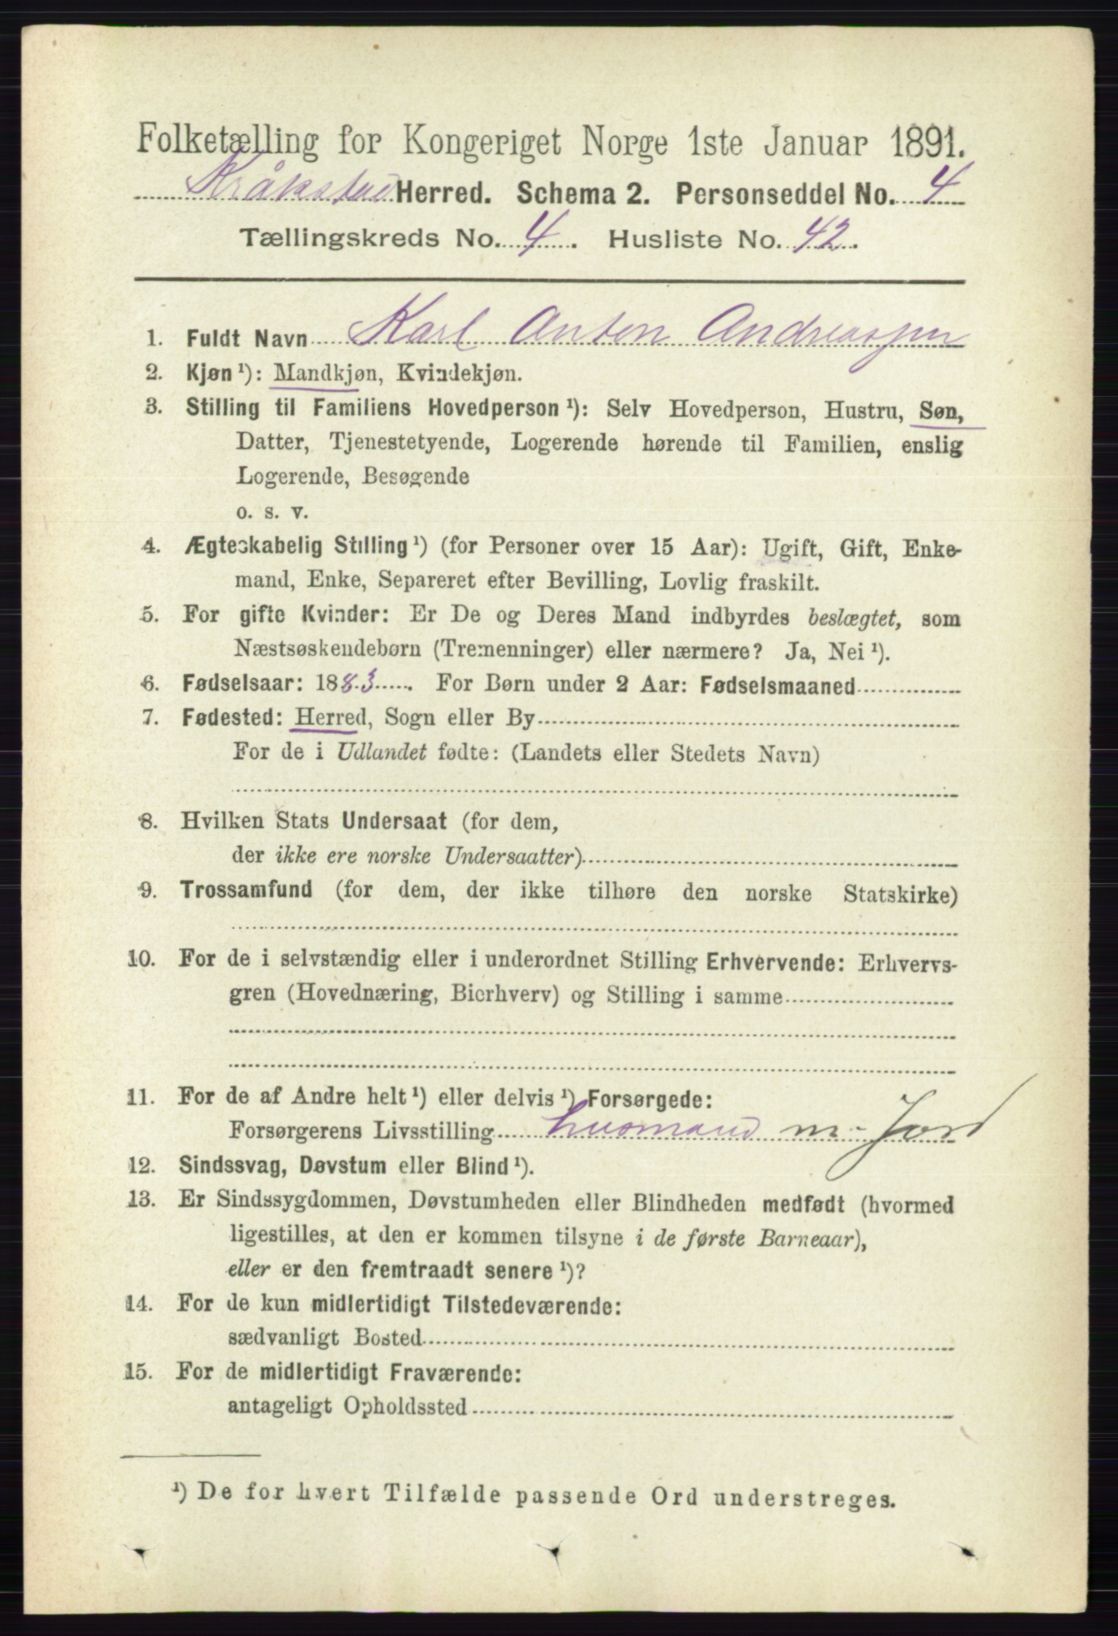 Folketælling for Kongeriget Norge 1ste Januar 1891.
Kråkstad Herred. Schema 2. Personseddel No. 4
Tællingskreds No. 4. Husliste No. 42.
1. Fuldt Navn Karl Anton Andreassen
2. Kjøn ¹): Mandkjøn, Kvindekjøn.
3. Stilling til Familiens Hovedperson ¹): Selv Hovedperson, Hustru, Søn,
Datter, Tjenestetyende, Logerende hørende til Familien, enslig
Logerende, Besøgende
o. s. v.
4. Ægteskabelig Stilling ¹) (for Personer over 15 Aar): Ugift, Gift, Enke-
mand, Enke, Separeret efter Bevilling, Lovlig fraskilt.
5. For gifte Kvinder: Er De og Deres Mand indbyrdes beslægtet, som
Næstsøskendebørn (Tremenninger) eller nærmere? Ja, Nei ¹).
6. Fødselsaar: 1883. For Børn under 2 Aar: Fødselsmaaned
7. Fødested: Herred, Sogn eller By
For de i Udlandet fødte: (Landets eller Stedets Navn)
8. Hvilken Stats Undersaat (for dem,
der ikke ere norske Undersaatter)
9. Trossamfund (for dem, der ikke tilhøre den norske Statskirke)
10. For de i selvstændig eller i underordnet Stilling Erhvervende: Erhvervs-
gren (Hovednæring, Bierhverv) og Stilling i samme
11. For de af Andre helt ¹) eller delvis ¹) Forsørgede:
Forsørgerens Livsstilling husmand m. Jord
12. Sindssvag, Døvstum eller Blind ¹).
13. Er Sindssygdommen, Døvstumheden eller Blindheden medfødt (hvormed
ligestilles, at den er kommen tilsyne i de første Barneaar),
eller er den fremtraadt senere ¹)?
14. For de kun midlertidigt Tilstedeværende:
sædvanligt Bosted
15. For de midlertidigt Fraværende:
antageligt Opholdssted
¹) De for hvert Tilfælde passende Ord understreges.